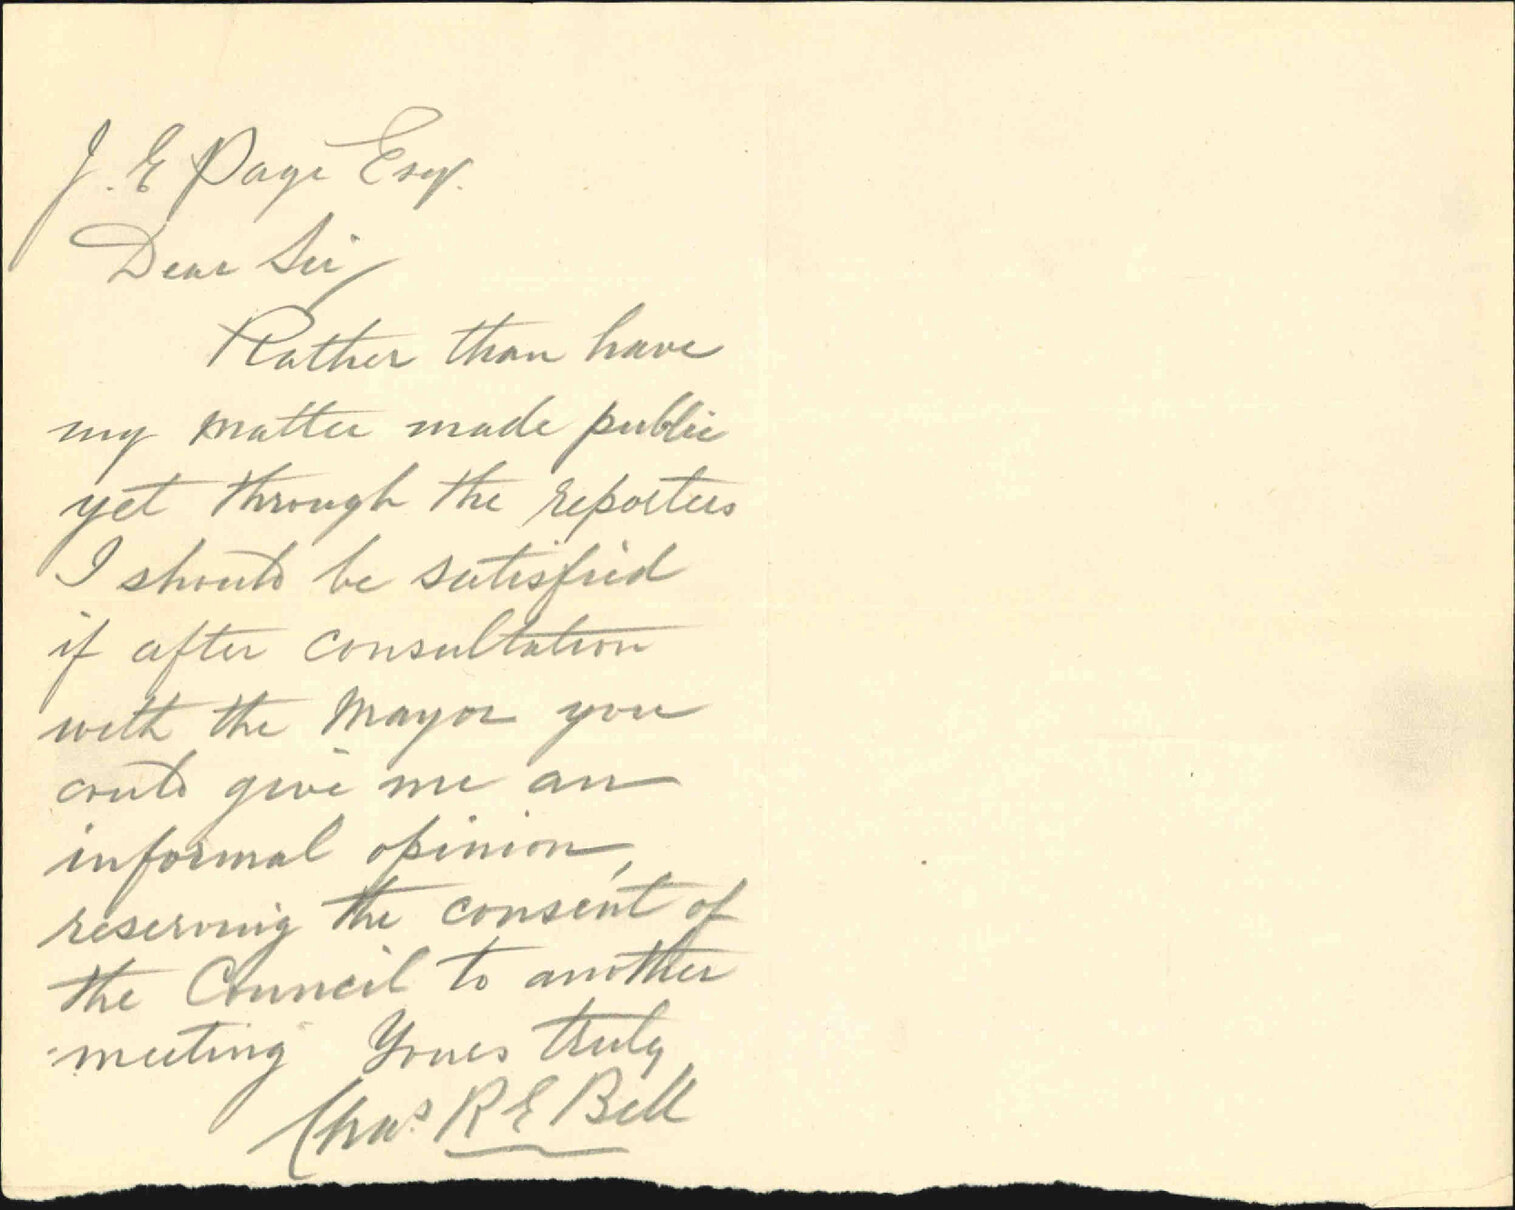 J. E Page Esq.
Dear Sir
Rather than have
my matter made public
yet through the reporters
I should be satisfied
if after consultation
with the Mayor you
could give me an
informal opinion,
reserving the consent of
the Council to another
meeting Yours truly
Chas R E Bell